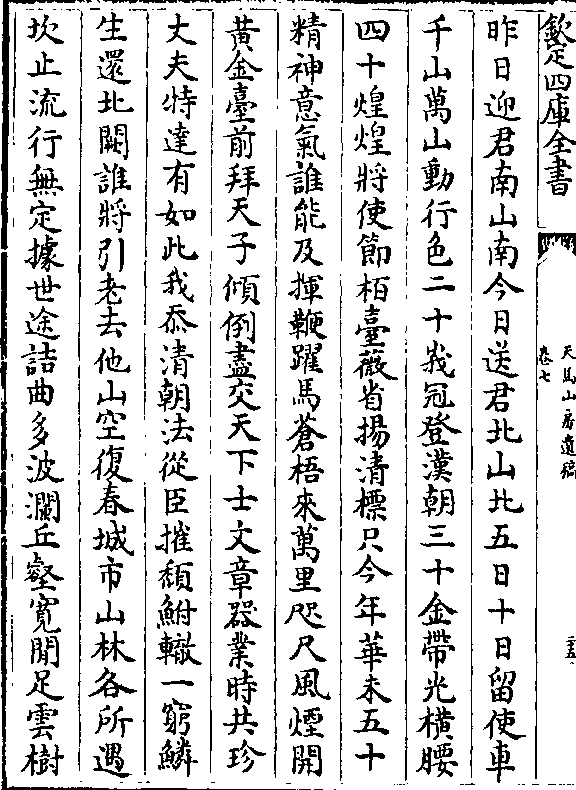 欽定四庫全書
天馬山房遺稿
卷七
昨日迎君南山南今日送君北山北五日十日留使車
千山萬山動行色二十峩冠登漢朝三十金帶光橫腰
四十煌煌將使節栢臺薇省揚清標只今年華未五十
精神意氣誰能及揮鞭躍馬蒼梧來萬里咫尺風煙開
黃金臺前拜天子傾倒盡交天下士文章器業時共珍
丈夫特達有如此我忝清朝法從臣摧頽鮒轍一窮鱗
生還北闕誰將引老去他山空復春城市山林各所遇
坎止流行無定據世途詰曲多波瀾丘壑寛閒足雲樹